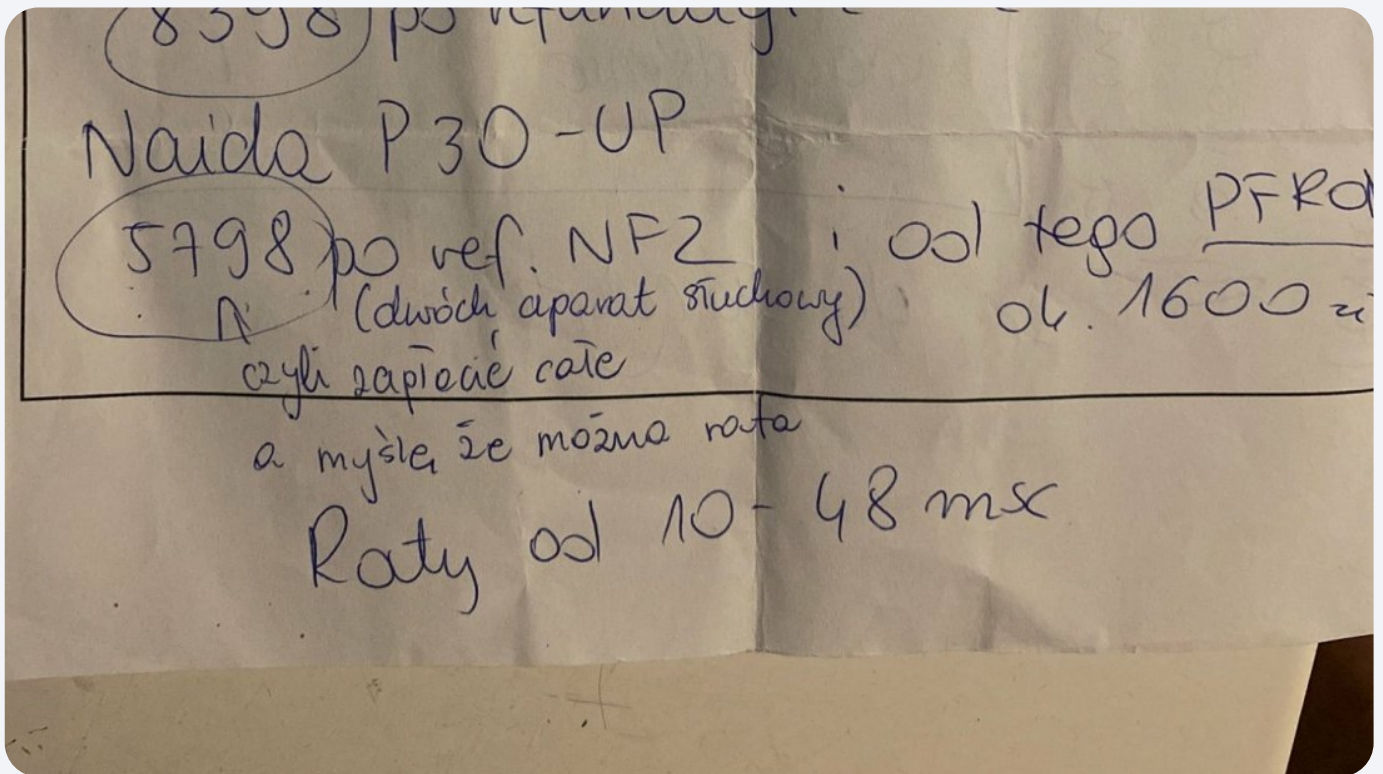 8398 po refundacji
Naida P30-UP
5798 po ref. NFZ i od tego PFRO
(dwóch aparat słuchowy) ok. 1600 zł
czyli zapłacić całe
a myślę, że można rata
Raty od 10-48 msc